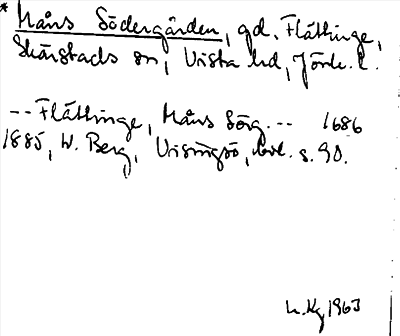 * Måns Södergården, gd, Flättinge,
Skärstads sn, Vista hd, Jönk. l.
-- Flättinge, Måns Sörg. -- 1686
1885, W. Berg, Visingsö, s. 90.
1963